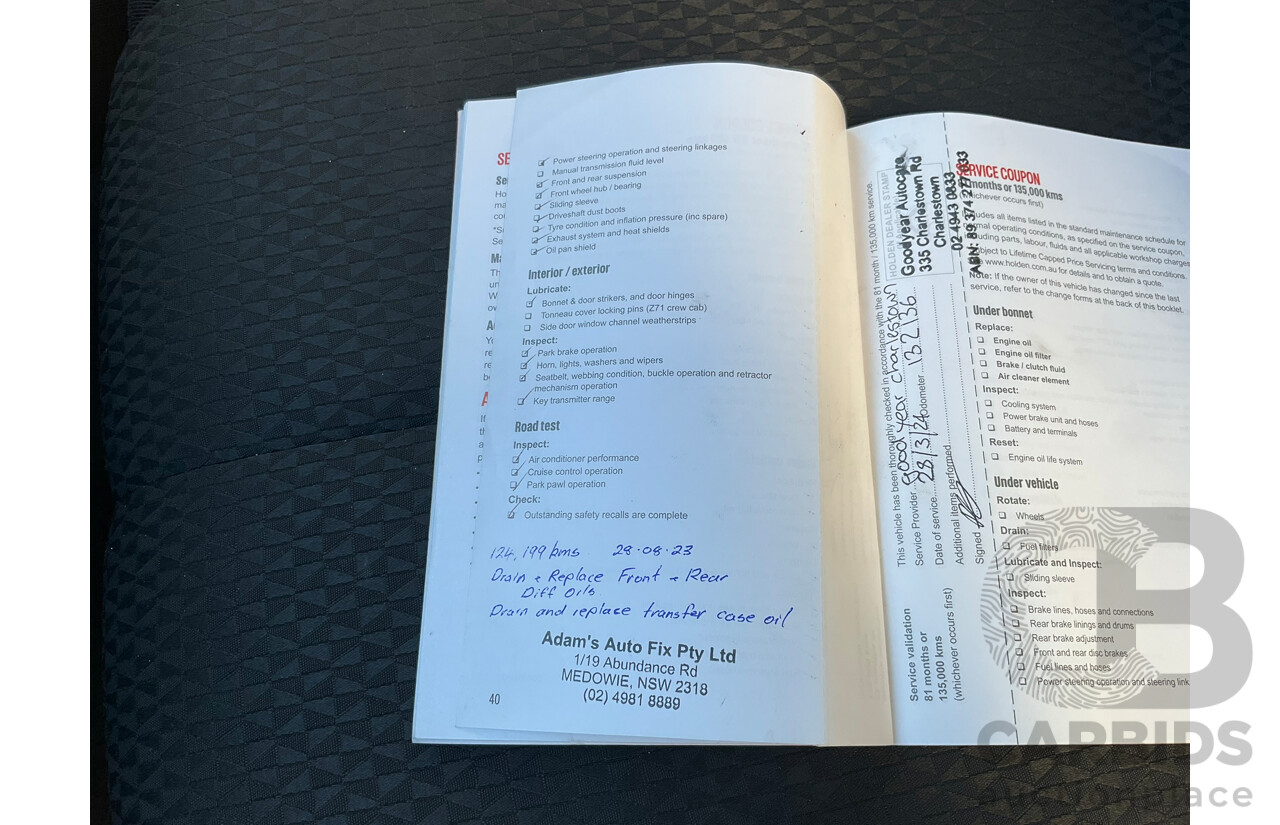 SE
Se
Ho
ma
co
*S
Se
Ma
Th
un
W
ov
A
Yo
re
re
b
A
If
th
a
p
Power steering operation and steering linkages
Manual transmission fluid level
Front and rear suspension
Front wheel hub / bearing
Sliding sleeve
Driveshaft dust boots
Tyre condition and inflation pressure (inc spare)
Exhaust system and heat shields
Oil pan shield
Interior / exterior
Lubricate:
Bonnet & door strikers, and door hinges
Tonneau cover locking pins (Z71 crew cab)
Side door window channel weatherstrips
Inspect:
Park brake operation
Horn, lights, washers and wipers
Seatbelt, webbing condition, buckle operation and retractor
mechanism operation
Key transmitter range
Road test
Inspect:
Air conditioner performance
Cruise control operation
Park pawl operation
Check:
Outstanding safety recalls are complete
124,199 kms 28.08.23
Drain + Replace Front + Rear
Diff Oils
Drain and replace transfer case oil
Adam's Auto Fix Pty Ltd
1/19 Abundance Rd
MEDOWIE, NSW 2318
(02) 4981 8889
40
This vehicle has been thoroughly checked in accordance with the 81 month / 135,000 km service.
Service Provider Good year Charlestown
Date of service 28/3/24 odometer 132136
Additional items performed
Signed
HOLDEN DEALER STAMP
Goodyear Autocare
335 Charlestown Rd
Charlestown
02 4943 0833
ABN: 89 374 277 033
Service validation
81 months or
135,000 kms
(whichever occurs first)
SERVICE COUPON
months or 135,000 kms
whichever occurs first)
udes all items listed in the standard maintenance schedule for
mal operating conditions, as specified on the service coupon,
luding parts, labour, fluids and all applicable workshop charges
ubject to Lifetime Capped Price Servicing terms and conditions.
www.holden.com.au for details and to obtain a quote.
Note: If the owner of this vehicle has changed since the last
service, refer to the change forms at the back of this booklet.
Under bonnet
Replace:
Engine oil
Engine oil filter
Brake / clutch fluid
Air cleaner element
Inspect:
Cooling system
Power brake unit and hoses
Battery and terminals
Reset:
Engine oil life system
Under vehicle
Rotate:
Wheels
Drain:
Fuel filters
Lubricate and Inspect:
Sliding sleeve
Inspect:
Brake lines, hoses and connections
Rear brake linings and drums
Rear brake adjustment
Front and rear disc brakes
Fuel lines and hoses
Power steering operation and steering link
B
CARBIDS
Auctionplace